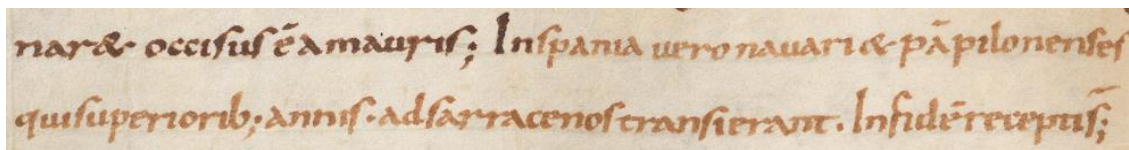 nar& occisus ē a mauris; Inspania uero nauari & pāpilonenses
qui superiorib; annis · ad sarracenos transierant · In fidē recepti s̄;